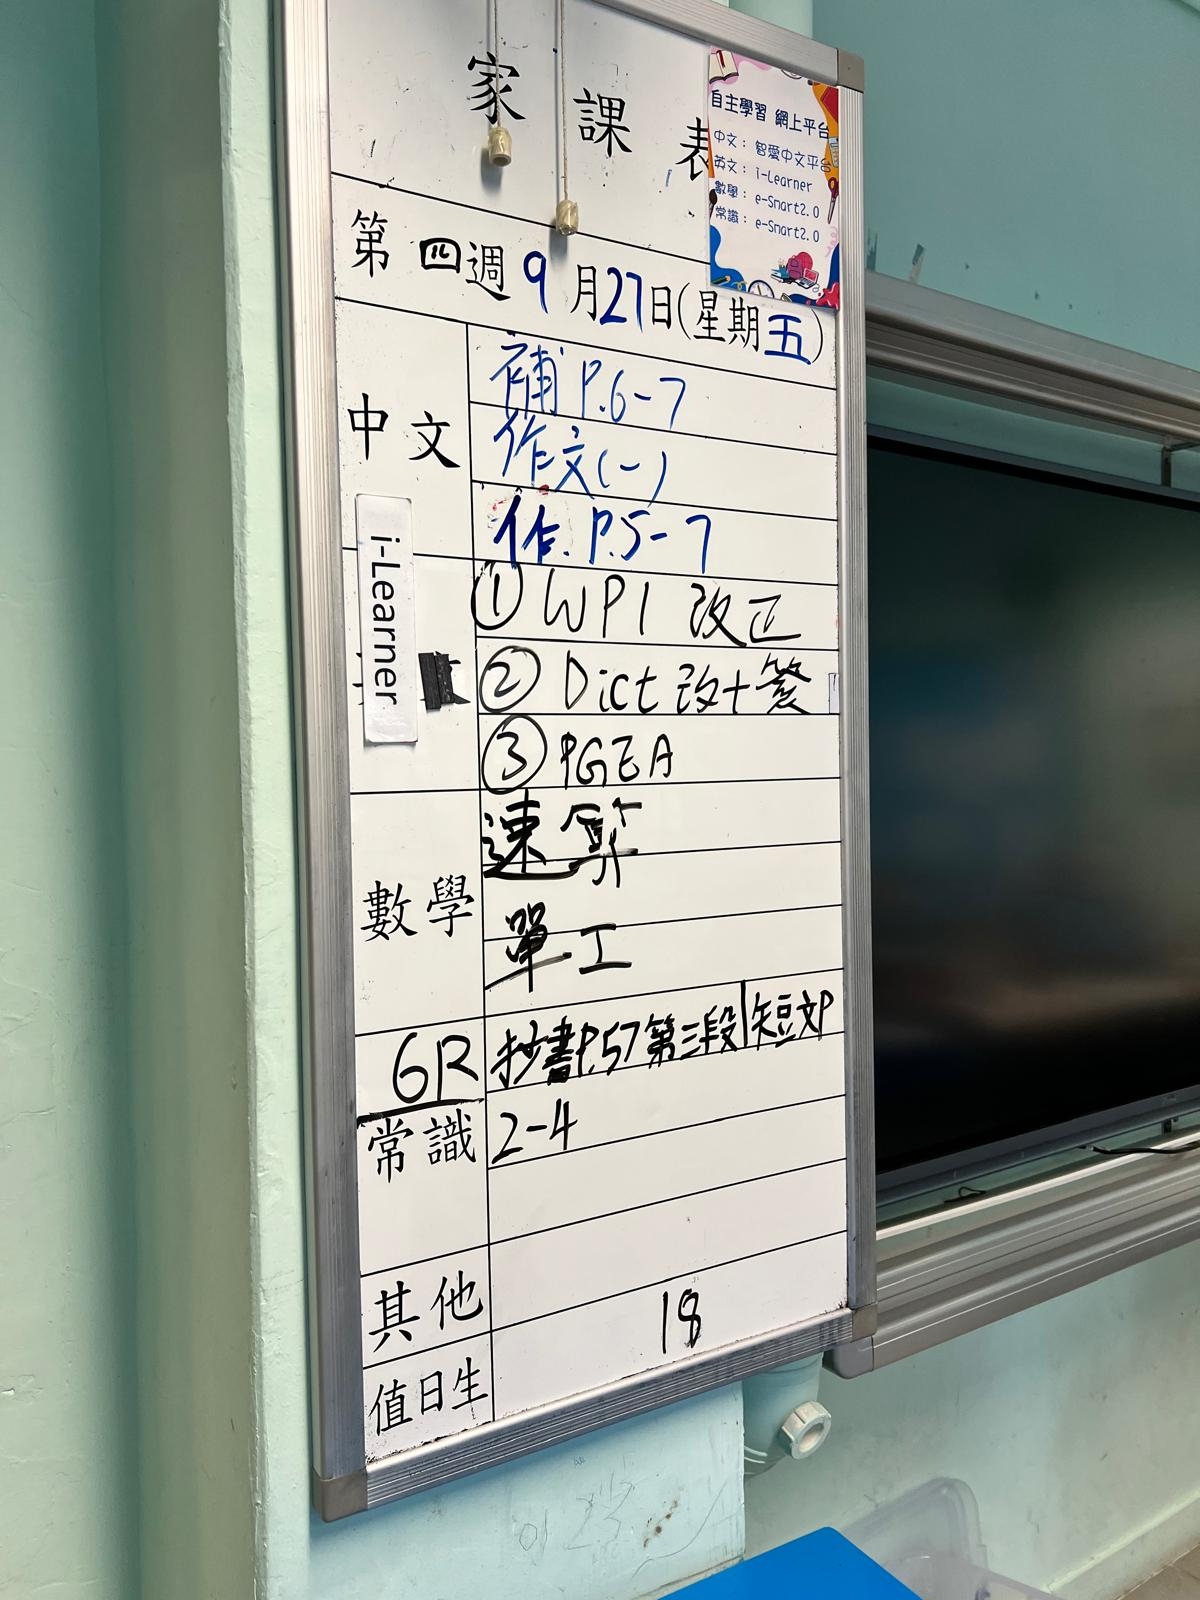 家課表
自主學習 網上平台
中文：智愛中文平台
英文：i-Learner
數學：e-Smart2.0
常識：e-Smart2.0
第四週9月27日(星期五)
中文
補 P.6-7
作文(一)
作. P.5-7
i-Learner
① WP1 改正
② Dict 改+簽
③ PGEA
數學
速算
單工
6R
抄書P.57第三段|短文P
常識
2-4
其他
值日生
18